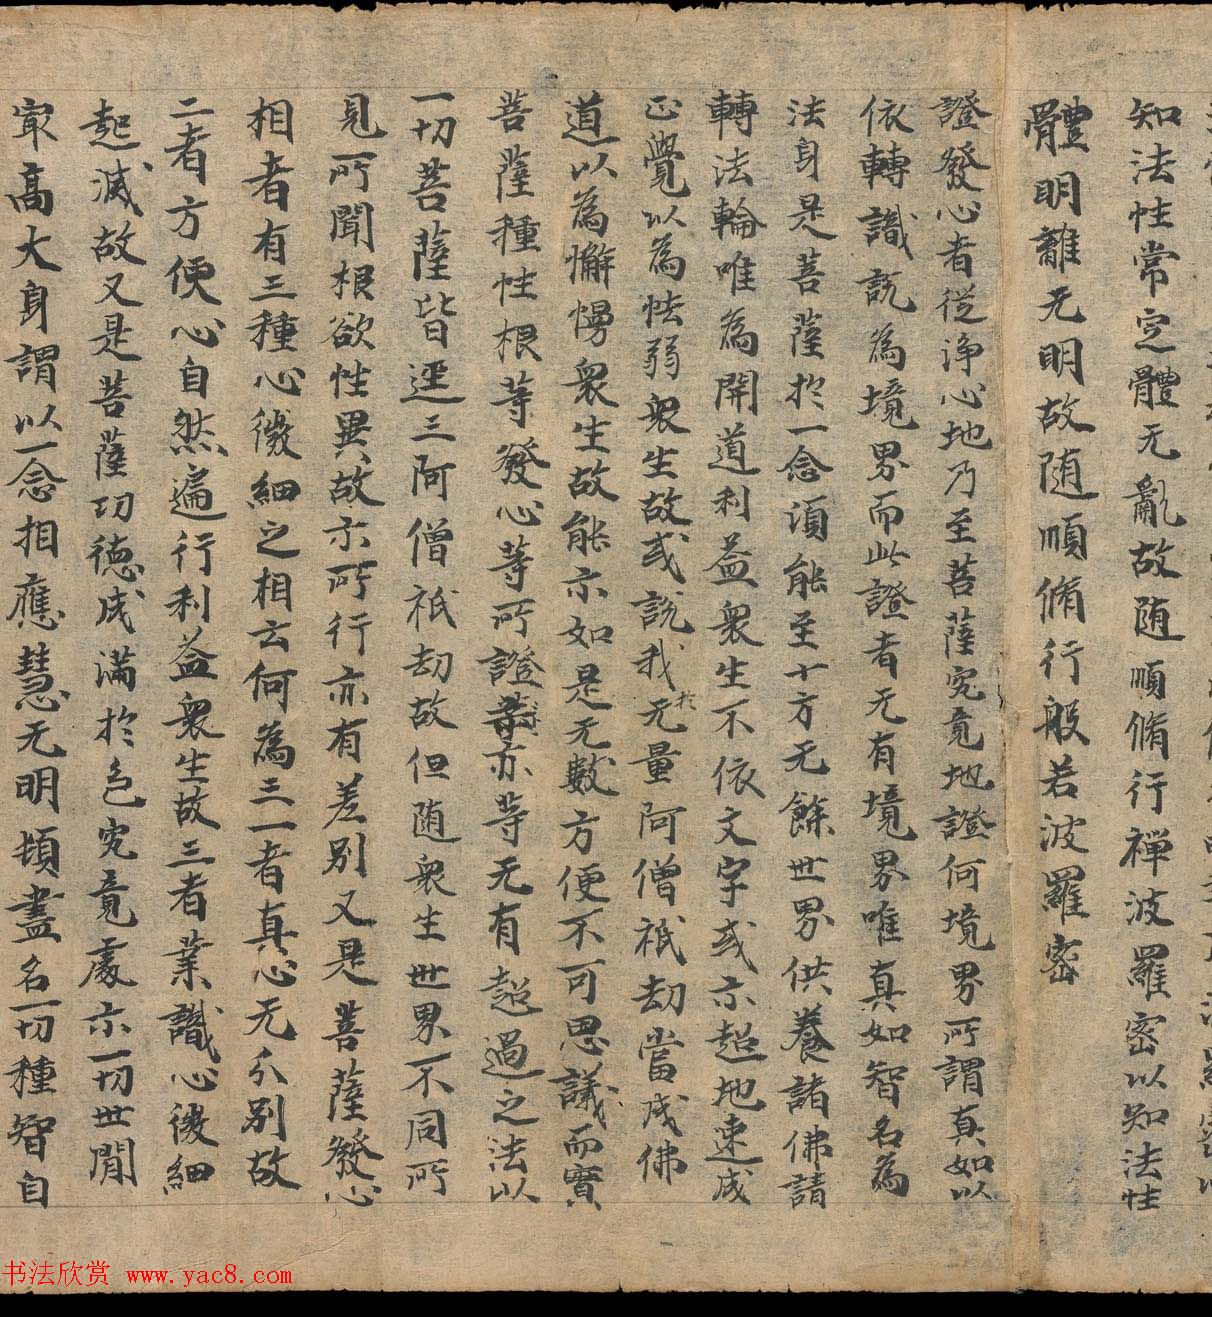 知法性常定體无亂故随順脩行禅波羅密以知法性
體明離无明故随順脩行般若波羅密
證發心者從淨心地乃至菩薩究竟地證何境界所謂真如以
依轉識說為境界而此證者无有境界唯真如智名為
法身是菩薩於一念頃能至十方无餘世界供養諸佛請
轉法輪唯為開道利益衆生不依文字或示超地速成
正覺以為怯弱衆生故或說我於无量阿僧祇劫當成佛
道以為懈慢衆生故能示如是无數方便不可思議而實
菩薩種性根等發心等所證亦等无有超過之法以
一切菩薩皆逕三阿僧祇劫故但随衆生世界不同所
見所聞根欲性異故示所行亦有差别又是菩薩發心
相者有三種心微細之相云何為三一者真心无分别故
二者方便心自然遍行利益衆生故三者業識心微細
起滅故又是菩薩功德成滿於色究竟處示一切世間
冣高大身謂以一念相應慧无明頓盡名一切種智自
书法欣赏 www.yac8.com